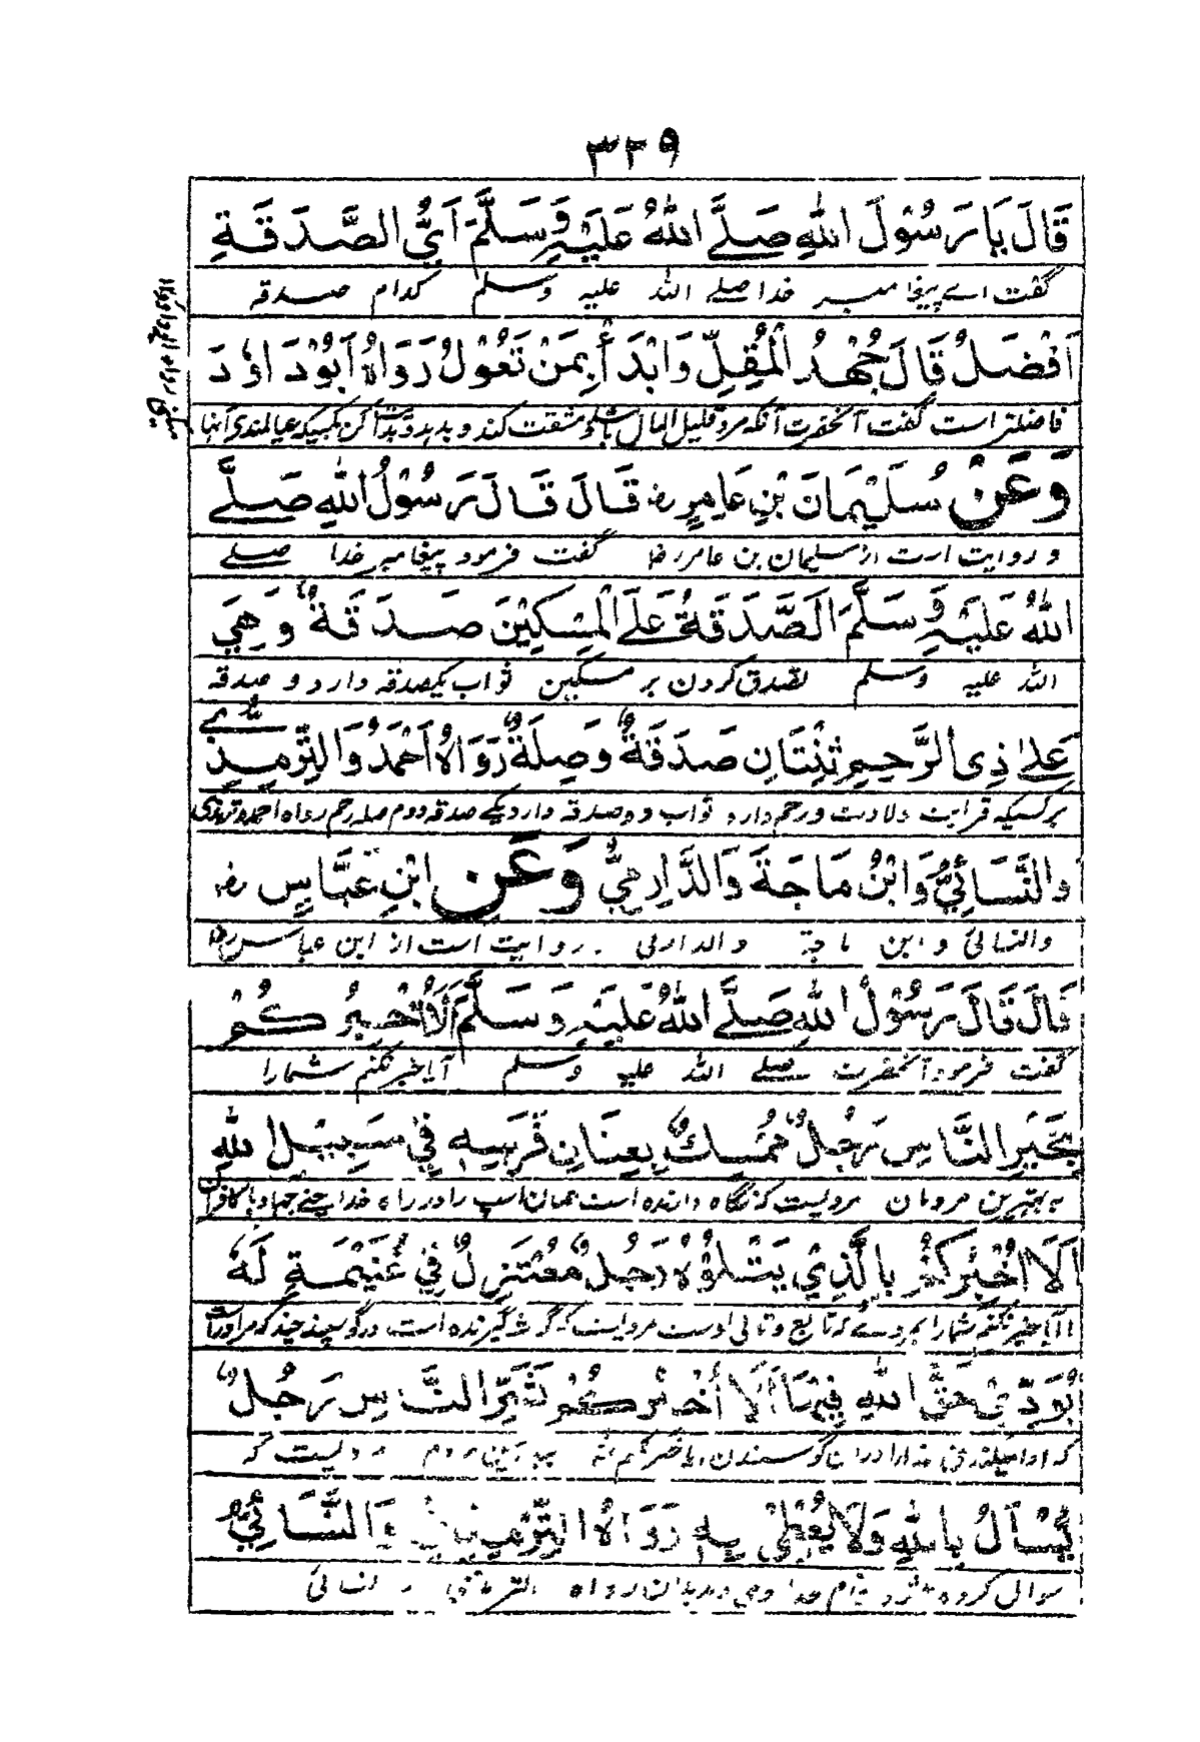 ٣٢٩
قَالَ يَا رَسُوْلَ اللهِ صَلَّے اللهُ عَلَيْهِ وَسَلَّمَ اَيُّ الصَّدَقَةِ
گفت اے پیغامبر خدا صلے اللہ علیہ وسلم کدام صدقہ
اَفْضَلُ قَالَ جُهْدُ الْمُقِلِّ وَابْدَأْ بِمَنْ تَعُوْلُ رَوَاهُ اَبُوْدَاوٗدَ
فاضلتر است گفت آنحضرت آنکہ مرد قلیل المال مشقت کند و بدہد
وَعَنْ سُلَيْمَانَ بْنِ عَامِرٍ رض قَالَ قَالَ رَسُوْلُ اللهِ صَلَّے
و روایت است از سلیمان بن عامر رضا گفت فرمود پیغامبر خدا صلے
اللهُ عَلَيْهِ وَسَلَّمَ اَلصَّدَقَةُ عَلَے الْمِسْكِيْنَ صَدَقَةٌ وَهِيَ
اللہ علیہ وسلم تصدق کردن بر مسکین ثواب یکصدقہ دارد و صدقہ
عَلےٰ ذِی الرَّحِمِ ثِنْتَانِ صَدَقَةٌ وَصِلَةٌ رَوَاهُ اَحْمَدُ وَالتِّرْمِذِيُّ
برکسیکہ قرابت ولادت و رحم دارد ثواب دو صدقہ دارد یکے صدقہ دوم صلہ رحم رواہ احمد و ترمذی
وَالنَّسَائِيُّ وَابْنُ مَاجَةَ وَالدَّارِمِيُّ وَعَنِ ابْنِ عَبَّاسٍ رض
والنسائی و ابن ماجۃ والدارمی . روایت است از ابن عباس رض
قَالَ قَالَ رَسُوْلُ اللهِ صَلَّے اللهُ عَلَيْهِ وَسَلَّمَ اَلَا اُخْبِرُكُمْ
گفت فرمود آنحضرت صلے اللہ علیہ وسلم آیا خبر نکنم شمارا
بِخَيْرِ النَّاسِ رَجُلٌ مُمْسِكٌ بِعِنَانِ فَرَسِهٖ فِيْ سَبِيْلِ اللهِ
بہ بہترین مردمان مردیست کہ نگاہ دارندہ است عنان اسپ را در راہ خدا یعنے جہاد با کافران
اَلَا اُخْبِرُكُمْ بِالَّذِيْ يَتْلُوْهُ رَجُلٌ مُعْتَزِلٌ فِيْ غُنَيْمَةٍ لَهٗ
آیا خبر نکنم شمارا تابع و تالی اوست مردیست کہ گوشہ گیرندہ است در گوسپند چند کہ مر اوراست
يُؤَدِّيْ حَقَّ اللهِ فِيْهَا اَلَا اُخْبِرُكُمْ بِشَرِّ النَّاسِ رَجُلٌ
خدا را در ان گوسپندان مردم مردیست کہ
يُسْأَلُ بِاللهِ وَلَا يُعْطِيْ بِهٖ رَوَاهُ التِّرْمِذِيُّ وَالنَّسَائِيُّ
سوال کردہ بنام خدا رواہ الترمذی نسائی